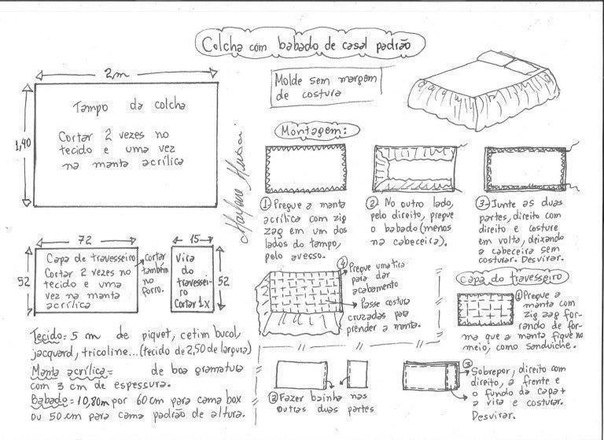 Colcha com babado de casal padrão
2m
Molde sem margem
de costura
1,40
Tampo da colcha
Cortar 2 vezes no
tecido e uma vez
na manta acrílica
Montagem:
① Pregue a manta
acrílica com zig
zag em um dos
lados do tampo,
pelo avesso.
② No outro lado,
pelo direito, pregue
o babado (menos
na cabeceira).
③- Junte as duas
partes, direito com
direito e costure
em volta, deixando
a cabeceira sem
costurar. Desvirar.
72
52
Capa de travesseiro
Cortar 2 vezes no
tecido e uma
vez na manta
acrílica
Cortar
também
no
forro.
15
52
Vira
do
travessei-
ro
Cortar 1x
④ Pregue uma tira
para dar
acabamento
Passe costura
cruzadas para
prender a manta.
Capa do travesseiro
① Pregue a
manta com
zig zag for-
rando de for-
ma que a manta fique no
meio, como sanduiche.
Tecido = 5 m de piquet, cetim bucol,
jacquard, tricoline...(tecido de 2,50 de largura)
Manta acrílica = de boa gramatura
com 3 cm de espessura.
Babado = 10,80m por 60cm para cama box
ou 50cm para cama padrão de altura.
② Fazer bainha nas
outras duas partes
③ Sobrepor, direito com
direito, a frente e
o fundo da capa +
a vira e costurar.
Desvirar.